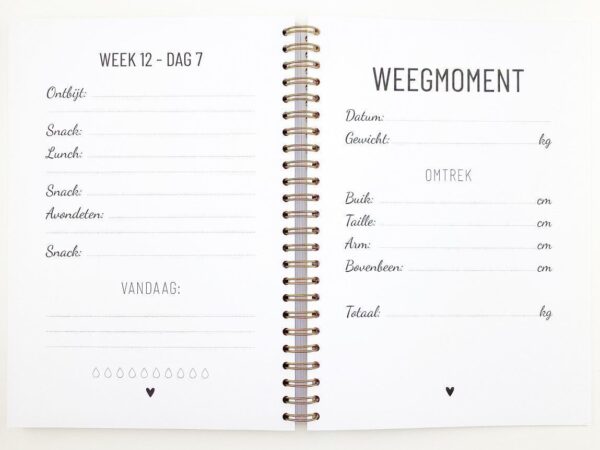 WEEK 12 - DAG 7
Ontbijt:
Snack:
Lunch:
Snack:
Avondeten:
Snack:
VANDAAG:
WEEGMOMENT
Datum:
Gewicht: kg
OMTREK
Buik: cm
Taille: cm
Arm: cm
Bovenbeen: cm
Totaal: kg